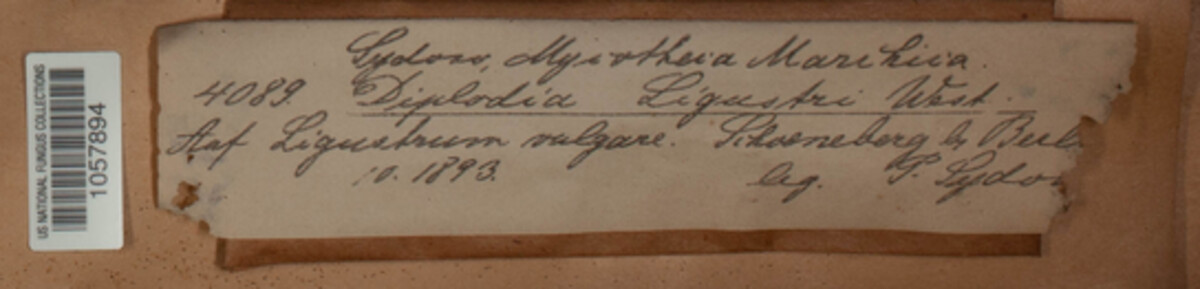 US NATIONAL FUNGUS COLLECTIONS
1057894
Sydow, Mycotheca Marchica.
4089. Diplodia Ligustri West.
Auf Ligustrum vulgare. Schoeneberg b. Berl
10. 1893.
leg. P. Sydow